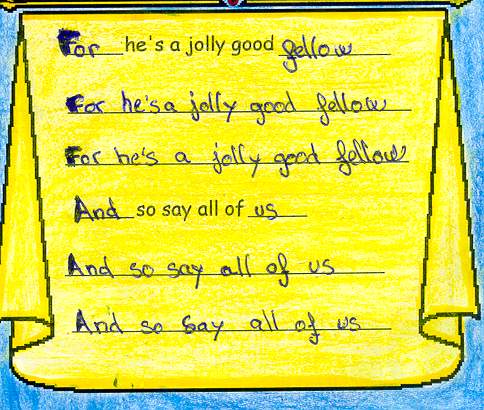 For he's a jolly good fellow
For he's a jolly good fellow
For he's a jolly good fellow
And so say all of us
And so say all of us
And so say all of us